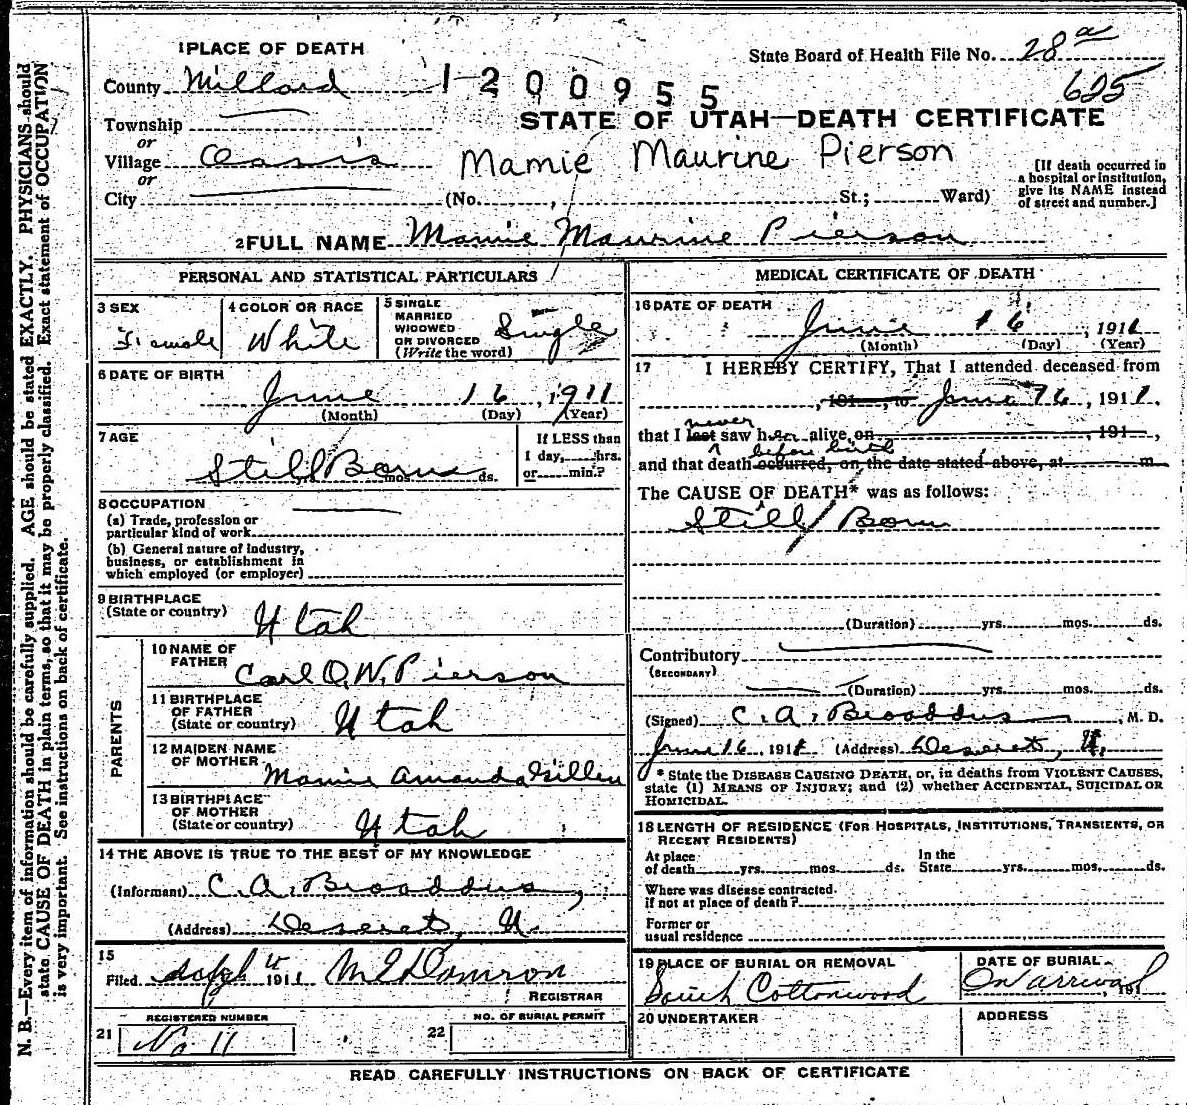 1 PLACE OF DEATH
State Board of Health File No. 28 a
625
County Millard 1200955
STATE OF UTAH—DEATH CERTIFICATE
Township
or
Village Oasis
Mamie Maurine Pierson
or
City (No. , St.; Ward)
[If death occurred in a hospital or institution, give its NAME instead of street and number.]
2 FULL NAME Mamie Maurine Pierson
PERSONAL AND STATISTICAL PARTICULARS
3 SEX
Female
4 COLOR OR RACE
White
5 SINGLE
MARRIED
WIDOWED
OR DIVORCED
(Write the word)
Single
6 DATE OF BIRTH
June 16, 1911
(Month) (Day) (Year)
7 AGE
Still Born
yrs. mos. ds.
If LESS than
1 day, hrs.
or min.?
8 OCCUPATION
(a) Trade, profession or
particular kind of work
(b) General nature of industry,
business, or establishment in
which employed (or employer)
9 BIRTHPLACE
(State or country)
Utah
PARENTS
10 NAME OF
FATHER
Carl O. W. Pierson
11 BIRTHPLACE
OF FATHER
(State or country)
Utah
12 MAIDEN NAME
OF MOTHER
Mamie Amanda
13 BIRTHPLACE
OF MOTHER
(State or country)
Utah
14 THE ABOVE IS TRUE TO THE BEST OF MY KNOWLEDGE
(Informant) C. A. Broaddus,
(Address) Deseret, U.
15
Filed 1911 M E Damron
REGISTRAR
REGISTERED NUMBER
21 No 11
NO. OF BURIAL PERMIT
22
MEDICAL CERTIFICATE OF DEATH
16 DATE OF DEATH
June 16, 1911
(Month) (Day) (Year)
17 I HEREBY CERTIFY, That I attended deceased from
, 191 , to June 16, 1911.
never
that I last saw her alive on , 191 ,
before birth
and that death occurred, on the date stated above, at m.
The CAUSE OF DEATH* was as follows:
Still Born
(Duration) yrs. mos. ds.
Contributory
(SECONDARY)
(Duration) yrs. mos. ds.
(Signed) C. A. Broaddus, M. D.
June 16, 1911 (Address) Deseret, U.
* State the DISEASE CAUSING DEATH, or, in deaths from VIOLENT CAUSES,
state (1) MEANS OF INJURY; and (2) whether ACCIDENTAL, SUICIDAL OR
HOMICIDAL.
18 LENGTH OF RESIDENCE (FOR HOSPITALS, INSTITUTIONS, TRANSIENTS, OR
RECENT RESIDENTS)
At place
of death yrs. mos. ds.
In the
State yrs. mos. ds.
Where was disease contracted
if not at place of death?
Former or
usual residence
19 PLACE OF BURIAL OR REMOVAL
South Cottonwood
DATE OF BURIAL
On arrival, 191
20 UNDERTAKER
ADDRESS
READ CAREFULLY INSTRUCTIONS ON BACK OF CERTIFICATE
N. B.—Every item of information should be carefully supplied. AGE should be stated EXACTLY. PHYSICIANS should
state CAUSE OF DEATH in plain terms, so that it may be properly classified. Exact statement of OCCUPATION
is very important. See instructions on back of certificate.